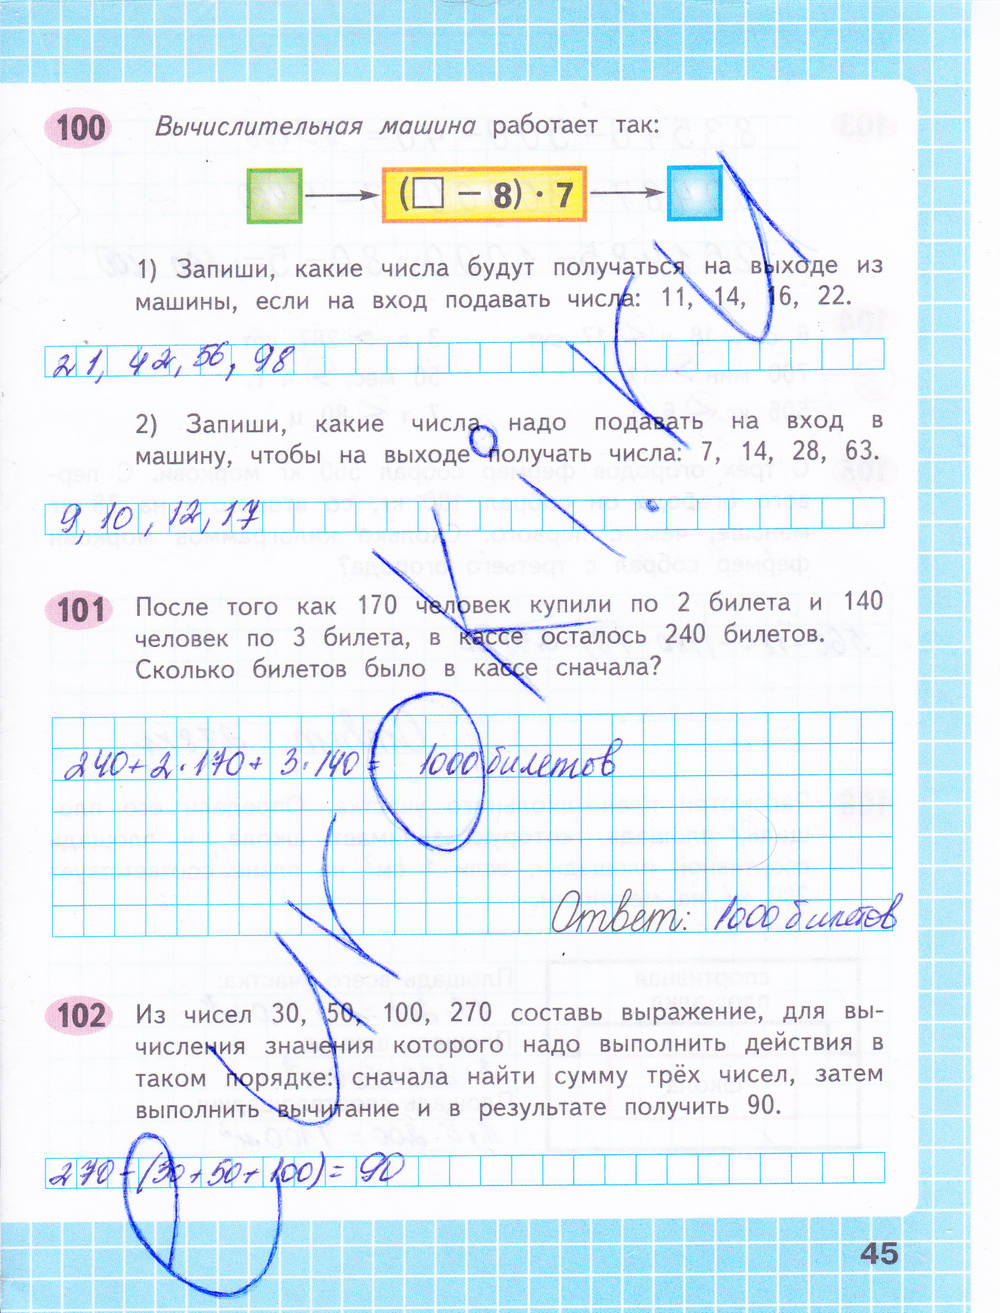 100 Вычислительная машина работает так:
(□ − 8) · 7
1) Запиши, какие числа будут получаться на выходе из
машины, если на вход подавать числа: 11, 14, 16, 22.
21, 42, 56, 98
2) Запиши, какие числа надо подавать на вход в
машину, чтобы на выходе получать числа: 7, 14, 28, 63.
9, 10, 12, 17
101 После того как 170 человек купили по 2 билета и 140
человек по 3 билета, в кассе осталось 240 билетов.
Сколько билетов было в кассе сначала?
240 + 2 · 170 + 3 · 140 = 1000 билетов
Ответ: 1000 билетов
102 Из чисел 30, 50, 100, 270 составь выражение, для вы-
числения значения которого надо выполнить действия в
таком порядке: сначала найти сумму трёх чисел, затем
выполнить вычитание и в результате получить 90.
270 − (30 + 50 + 100) = 90
45